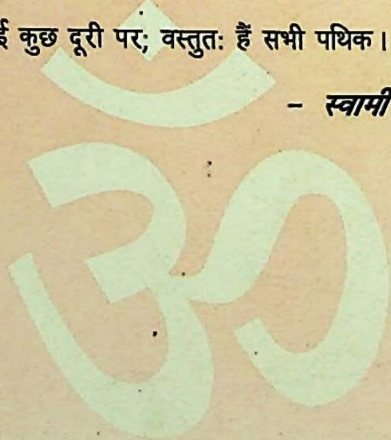 कुछ दूरी पर; वस्तुतः हैं सभी पथिक।
- स्वामी
ॐ